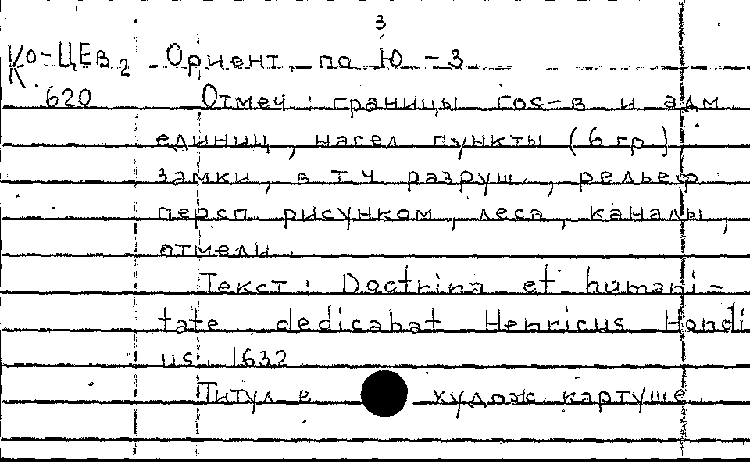 3
Ко-ЦЕв.2 Ориент. по Ю-З
620 Отмеч: границы гос-в и адм.
единиц, насел. пункты (6 гр.)
замки, в т.ч. разруш., рельеф
персп. рисунком, леса, каналы,
отмели.
Текст: Doctrina et humani-
tate dedicabat Henricus Hondi
us 1632
Титул в худож. картуше